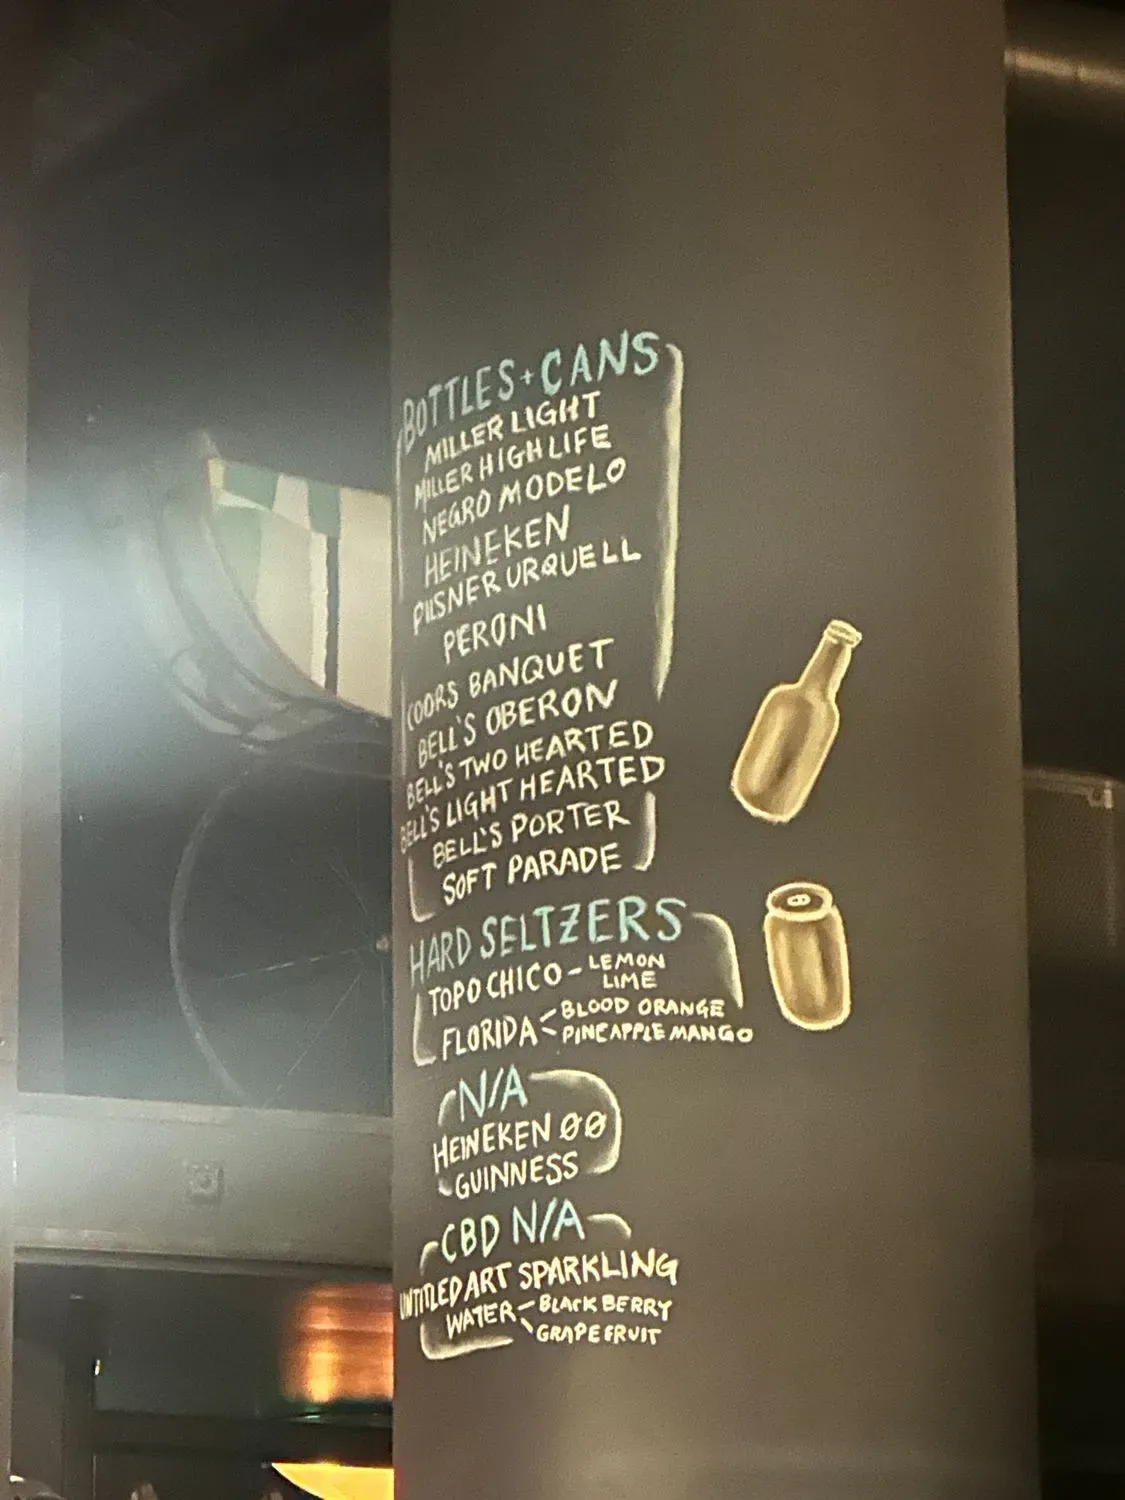 BOTTLES+CANS
MILLER LIGHT
MILLER HIGH LIFE
NEGRO MODELO
HEINEKEN
PILSNER URQUELL
PERONI
COORS BANQUET
BELL'S OBERON
BELL'S TWO HEARTED
BELL'S LIGHT HEARTED
BELL'S PORTER
SOFT PARADE
HARD SELTZERS
TOPO CHICO - LEMON
LIME
FLORIDA < BLOOD ORANGE
PINEAPPLE MANGO
N/A
HEINEKEN 00
GUINNESS
CBD N/A
UNTITLED ART SPARKLING
WATER - BLACKBERRY
GRAPEFRUIT